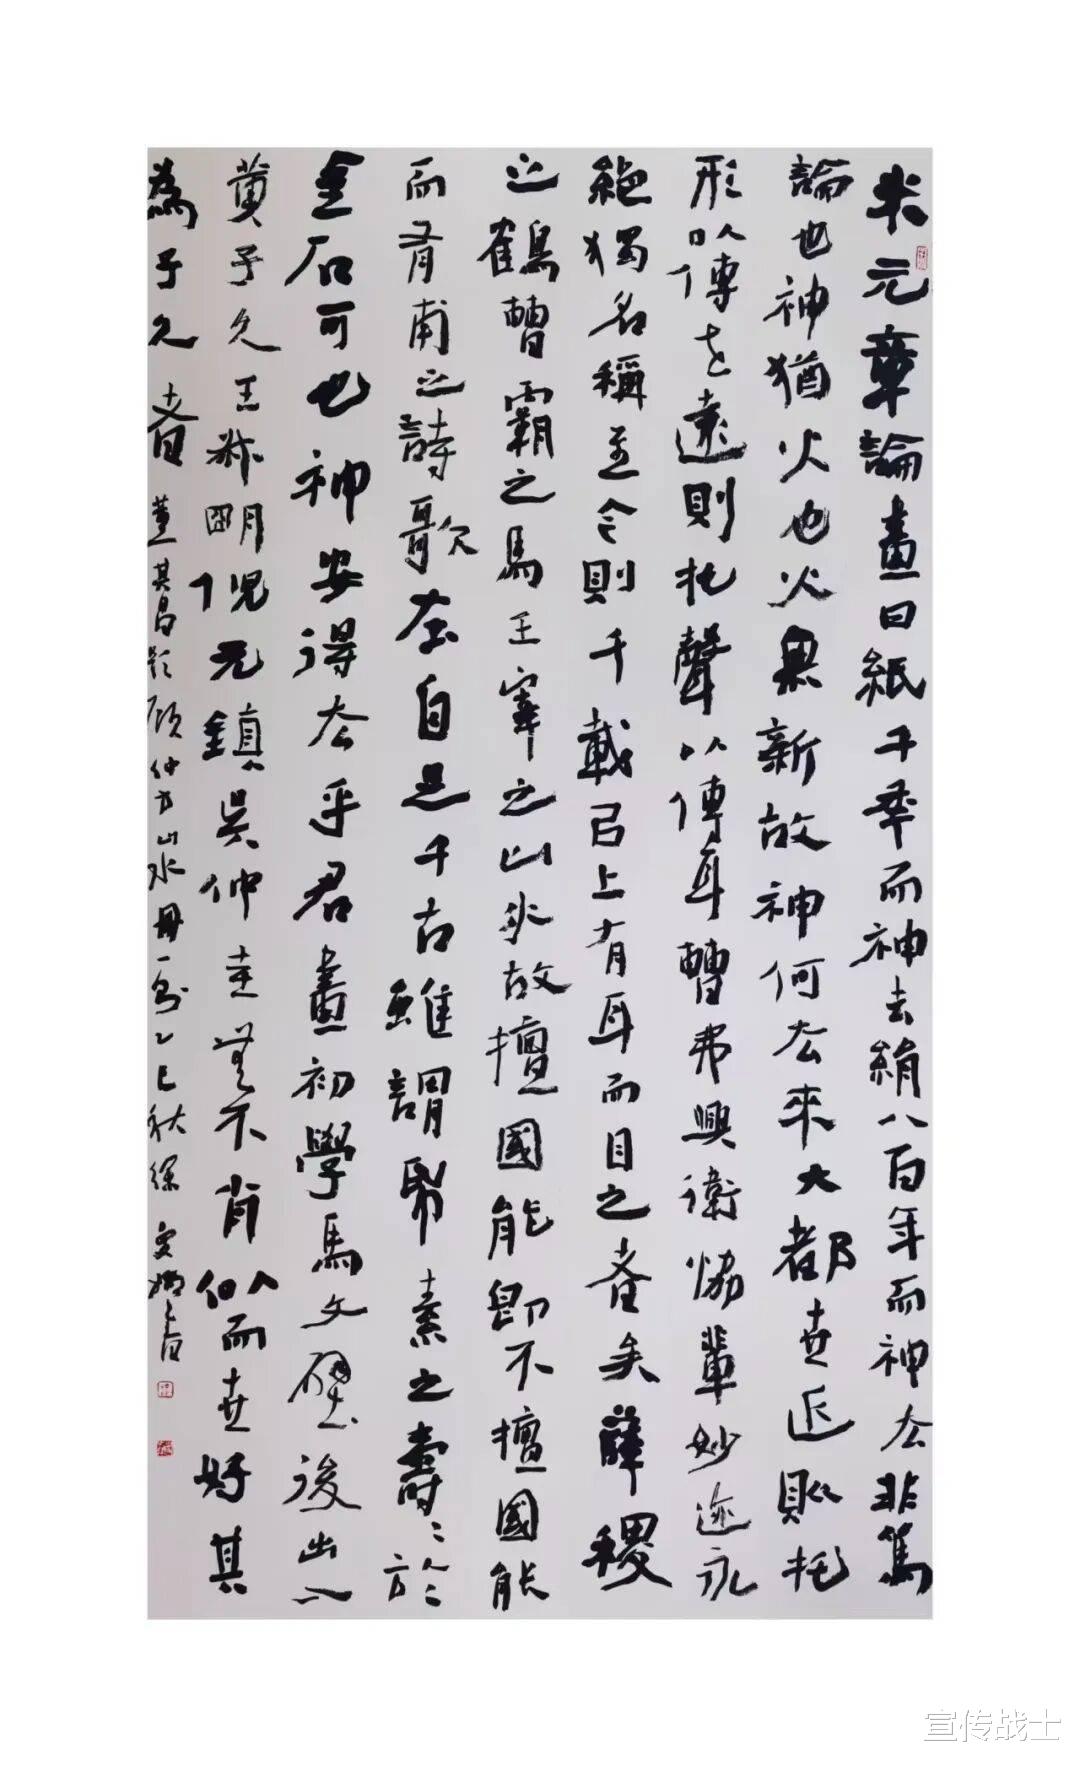 米元章論畫曰紙千年而神去絹八百年而神去非篤
論也神猶火也火無新故神何去來大都世近則托
形以傳世遠則托聲以傳耳曹弗興衛協輩妙迹永
絕獨名稱至今則千載已上有耳而目之者矣薛稷
之鶴曹霸之馬王宰之山水故擅國能即不擅國能
而有甫之詩歌在自足千古雖謂縑素之壽壽於
金石可也神安得去乎君畫初學馬文璧後出入
黃子久王叔明倪元鎮吳仲圭無不肖似而世好其
為子久者 董其昌題顧仲方山水冊一則乙巳秋徐
書
宣传战士